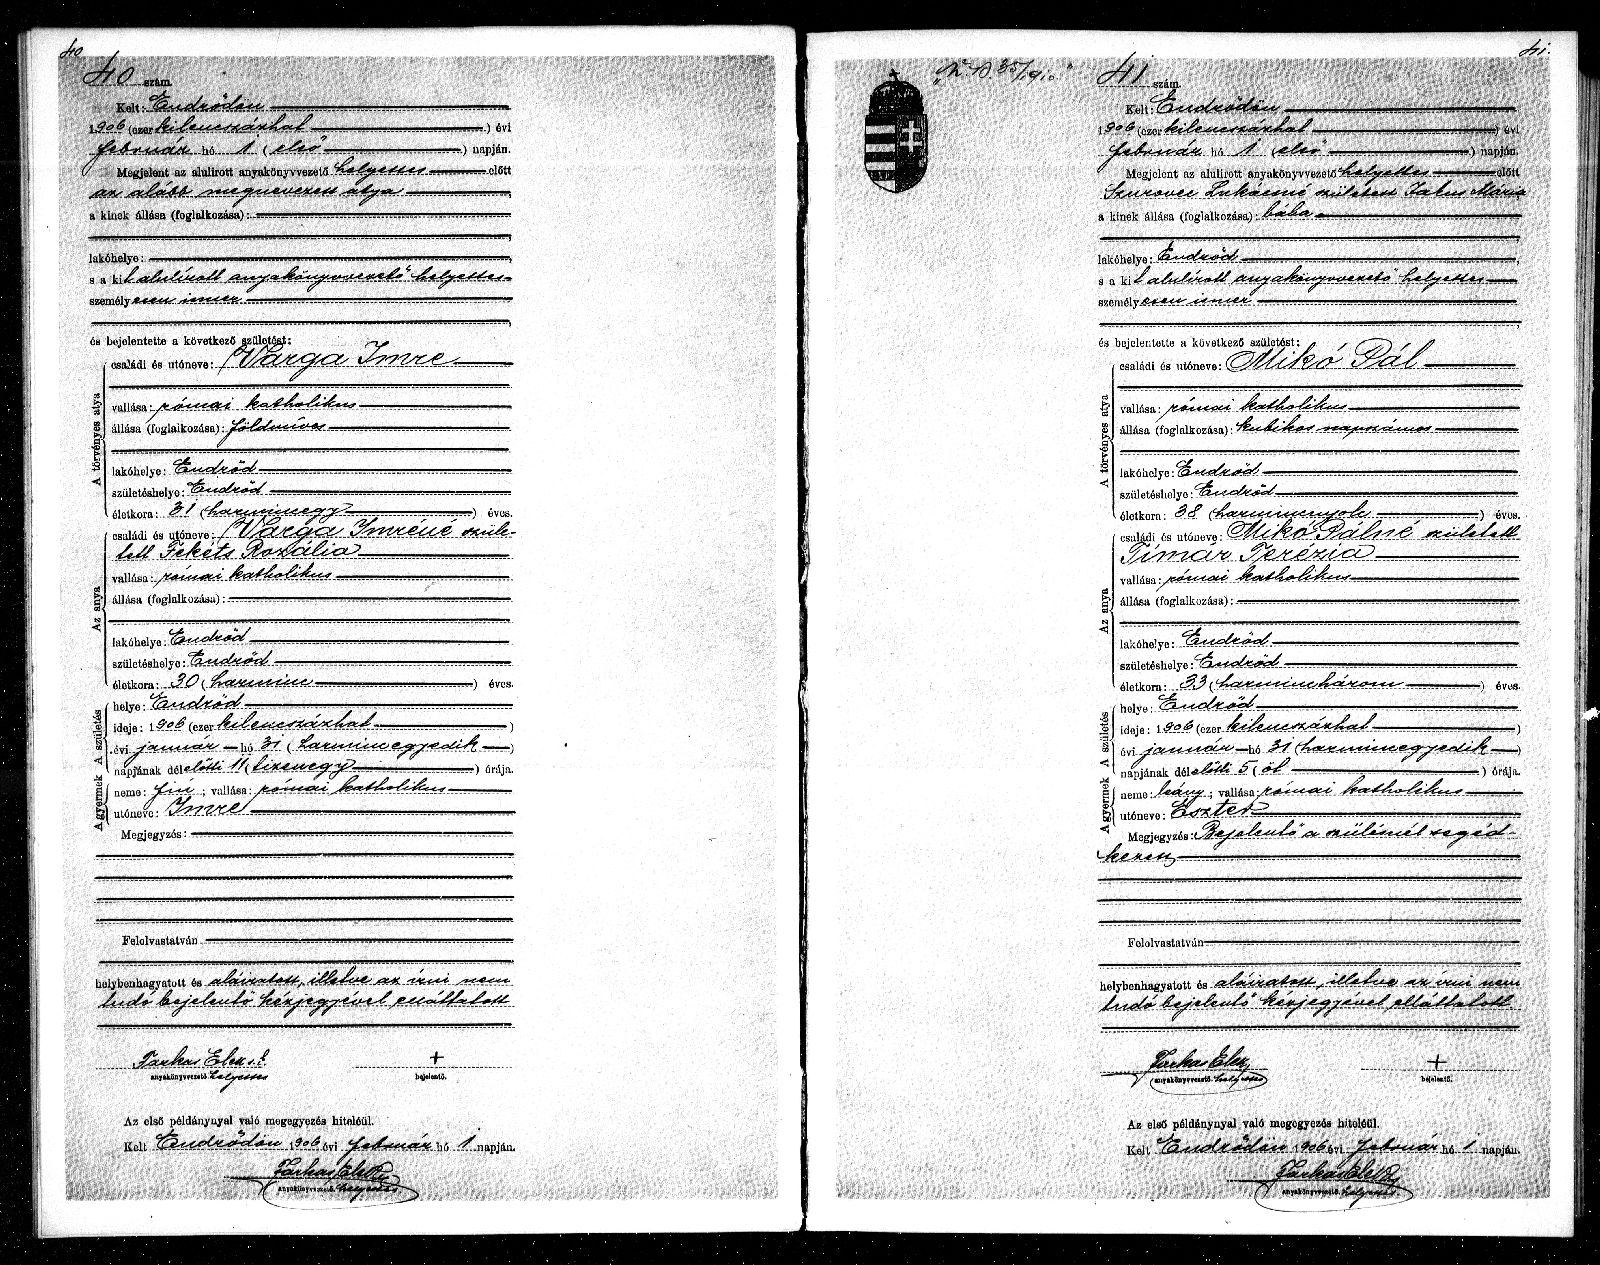 40
40 szám.
Kelt: Endrődön
1906 (ezer kilenczszázhat) évi
február hó 1 (első) napján.
Megjelent az alulirott anyakönyvvezető helyettes előtt
az alább megnevezett atya
a kinek állása (foglalkozása):
lakóhelye:
s a kit alulírott anyakönyvvezető helyettes
személyesen ismer
és bejelentette a következő születést:
A törvényes atya
családi és utóneve: Varga Imre
vallása: római katholikus
állása (foglalkozása): földmíves
lakóhelye: Endrőd
születéshelye: Endrőd
életkora: 31 (harminczegy) éves.
Az anya
családi és utóneve: Varga Imréné szüle-
tett Fekéts Rozália
vallása: római katholikus
állása (foglalkozása):
lakóhelye: Endrőd
születéshelye: Endrőd
életkora: 30 (harmincz) éves.
A születés
helye: Endrőd
ideje: 1906 (ezer kilenczszázhat)
évi január hó 31 (harminczegyedik)
napjának délelőtti 11 (tizenegy) órája.
A gyermek
neme: fiú; vallása: római katholikus
utóneve: Imre
Megjegyzés:
Felolvastatván
helybenhagyatott és aláíratott, illetve az írni nem
tudó bejelentő kézjegyével elláttatott
Farkas Elek s.k.
anyakönyvvezető helyettes
+
bejelentő.
Az első példánynyal való megegyezés hiteléül.
Kelt Endrődön 1906 évi február hó 1 napján.
Farkas Elek
anyakönyvvezető helyettes
41.
41 szám.
Kelt: Endrődön
1906 (ezer kilenczszázhat) évi
február hó 1 (első) napján.
Megjelent az alulirott anyakönyvvezető helyettes előtt
Szurovecz Lukácsné született Mária
a kinek állása (foglalkozása): bába
lakóhelye: Endrőd
s a kit alulírott anyakönyvvezető helyettes
személyesen ismer
és bejelentette a következő születést:
A törvényes atya
családi és utóneve: Mikó Pál
vallása: római katholikus
állása (foglalkozása): kubikos napszámos
lakóhelye: Endrőd
születéshelye: Endrőd
életkora: 38 (harmincznyolcz) éves.
Az anya
családi és utóneve: Mikó Pálné született
Tímár Terézia
vallása: római katholikus
állása (foglalkozása):
lakóhelye: Endrőd
születéshelye: Endrőd
életkora: 33 (harminczhárom) éves.
A születés
helye: Endrőd
ideje: 1906 (ezer kilenczszázhat)
évi január hó 31 (harminczegyedik)
napjának délelőtti 5 (öt) órája.
A gyermek
neme: leány; vallása: római katholikus
utóneve: Eszter
Megjegyzés: Bejelentő a szülésnél segéd-
kezett
Felolvastatván
helybenhagyatott és aláíratott, illetve az írni nem
tudó bejelentő kézjegyével elláttatott
Farkas Elek
anyakönyvvezető helyettes
+
bejelentő.
Az első példánynyal való megegyezés hiteléül.
Kelt Endrődön 1906 évi február hó 1 napján.
Farkas Elek
anyakönyvvezető helyettes